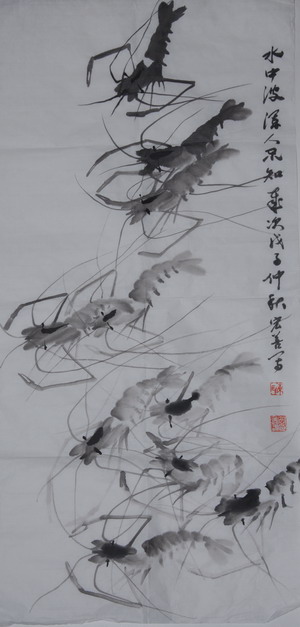 水中波深人不知 岁次戊子仲秋宏善写